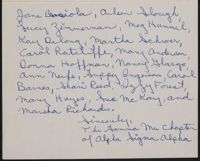 Jane Basiola, Arlene Slough,
Lucy Zimmerman, Meg Hunsil,
Kay DeLong, Martha Schorr,
Carol Ratcliffe, Mary Anderson,
Donna Hoffman, Nancy
Ann Neff, Ingerson, Carol
Barnes, Shari Reed, Izzy Frost,
Mary Hayes, Sue McKay, and
Marsha Richards.
Sincerely,
The Gamma Mu Chapter
of Alpha Sigma Alpha